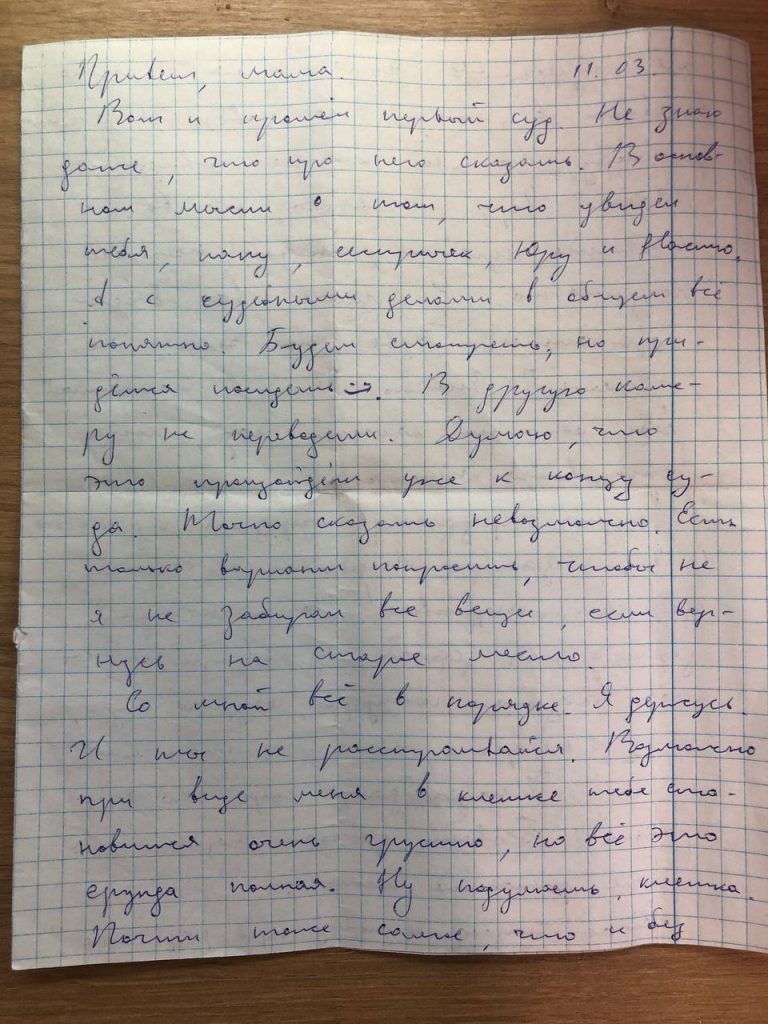 Привет, мама. 11.03.
Вот и прошёл первый суд. Не знаю
даже, что про него сказать. В основ-
ном мысли о том, что увидел
тебя, папу, сестричек, Юру и Настю.
А с судебными делами в общем всё
понятно. Будем смотреть, но при-
дётся посидеть :). В другую каме-
ру не переводили. Думаю, что
это произойдёт уже к концу су-
да. Точно сказать невозможно. Есть
только вариант попросить, чтобы не
я не забирал все вещи, если вер-
нусь на старое место.
Со мной всё в порядке. Я держусь.
И ты не расстраивайся. Возможно
при виде меня в клетке тебе ста-
новится очень грустно, но всё это
ерунда полная. Ну подумаешь, клетка.
Почти тоже самое, что и без